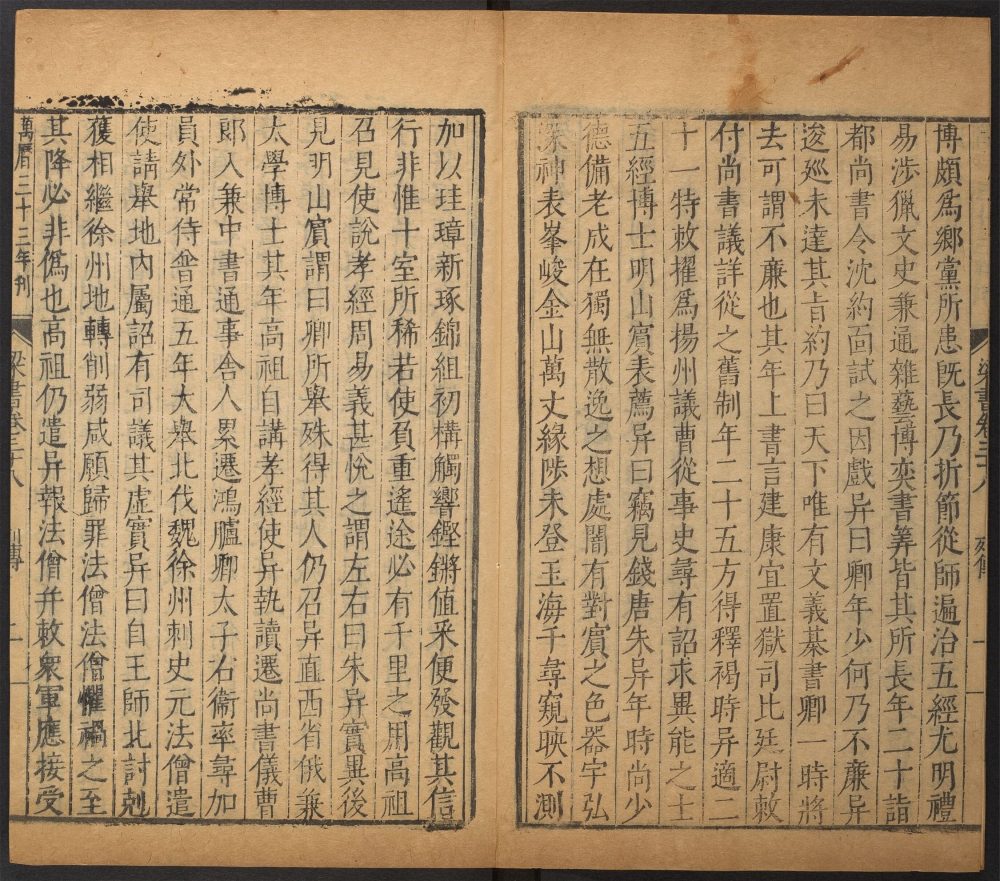 博頗爲鄉黨所患既長乃折節從師遍治五經尤明禮
易涉獵文史兼通雜藝博奕書筭皆其所長年二十詣
都尚書令沈約面試之因戲异曰卿年少何乃不廉异
逡廵未達其旨約乃曰天下唯有文義棊書卿一時將
去可謂不廉也其年上書言建康宜置獄司比廷尉敕
付尚書議詳從之舊制年二十五方得釋褐時异適二
十一特敕擢爲揚州議曹從事史尋有詔求異能之士
五經博士明山賓表薦异曰竊見錢唐朱异年時尚少
德備老成在獨無散逸之想處闇有對賓之色器宇弘
深神表峯峻金山萬丈緣陟未登玉海千尋窺映不測
梁書卷三十八 列傳 一
加以珪璋新琢錦組初構觸響鏗鏘值采便發觀其信
行非惟十室所稀若使負重遙途必有千里之用高祖
召見使說孝經周易義甚悅之謂左右曰朱异實異後
見明山賓謂曰卿所舉殊得其人仍召异直西省俄兼
太學博士其年高祖自講孝經使异執讀遷尚書儀曹
郎入兼中書通事舍人累遷鴻臚卿太子右衞率尋加
員外常侍普通五年大舉北伐魏徐州刺史元法僧遣
使請舉地內屬詔有司議其虛實异曰自王師北討剋
獲相繼徐州地轉削弱咸願歸罪法僧法僧懼禍之至
其降必非僞也高祖仍遣异報法僧幷敕衆軍應接受
萬曆三十三年刊 梁書卷三十八 列傳 二